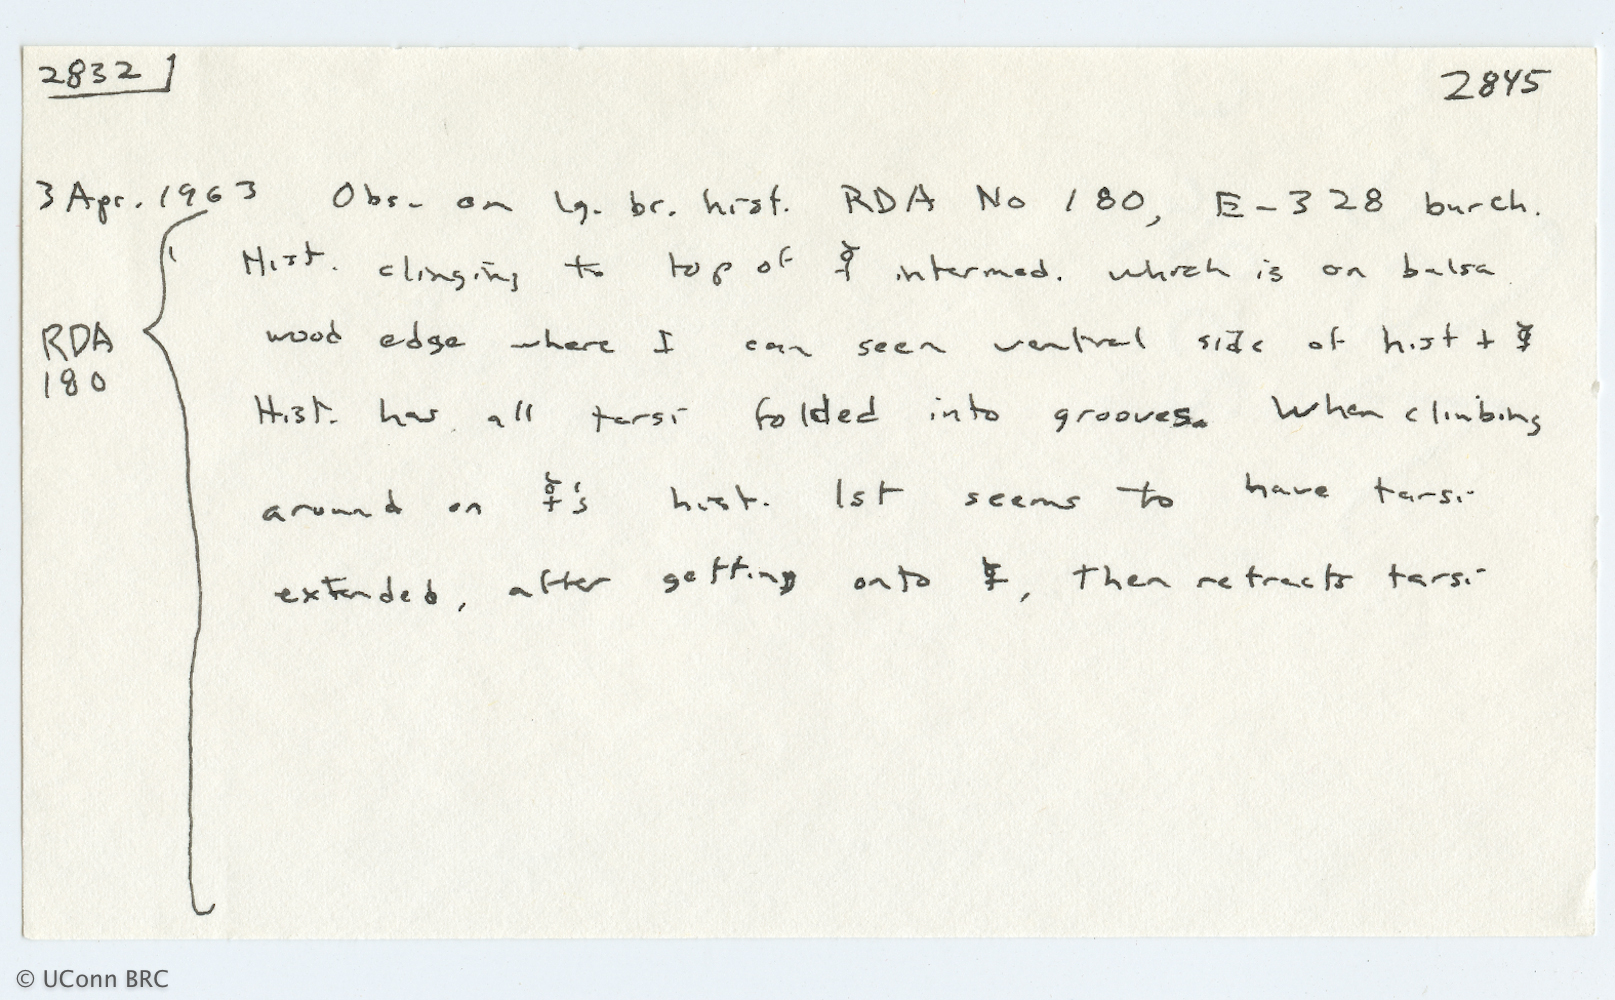 2832
2845
3 Apr. 1963 Obs. on lg. br. hist. RDA No 180, E-328 burch.
Hist. clinging to top of ☿ intermed. which is on balsa
RDA
180
wood edge where I can seen ventral side of hist + ☿
Hist. has all tarsi folded into grooves. When climbing
around on ☿'s hist. 1st seems to have tarsi
extended, after getting onto ☿, then retracts tarsi
© UConn BRC